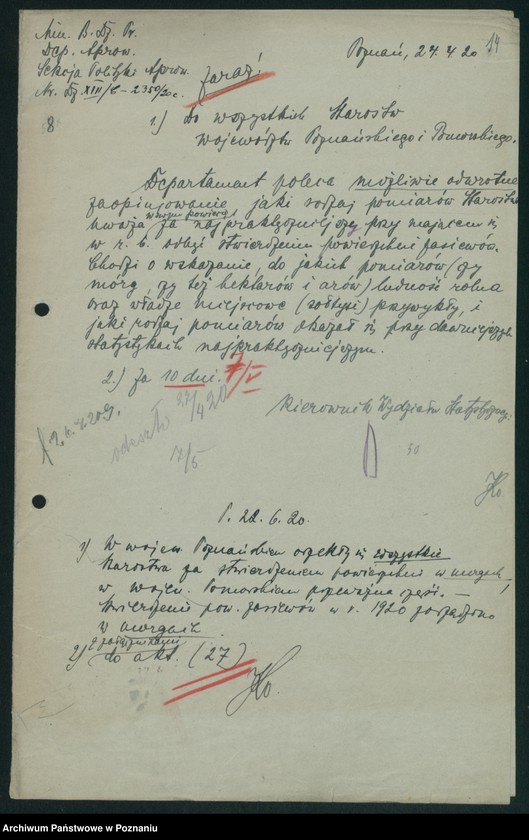 Min. B. Dz. Pr.
Dep. Aprow.
Sekcja Polityki Aprow.
Nr. Dz. XIII/C - 2350/20 c.
Poznań, 24.4.20
14
zaraz!
8
1.) Do wszystkich Starostw
Województw Poznańskiego i Pomorskiego.
Departament poleca możliwie odwrotne
zaopinjowanie jaki rodzaj pomiarów Starostwo
w swym powiecie
uważa za najpraktyczniejszy przy mającem się
w r. b. odbyć stwierdzeniu powierzchni zasiewów.
Chodzi o wskazanie, do jakich pomiarów (czy
mórg, czy też hektarów i arów) ludność rolna
oraz władze miejscowe (sołtysi) przywykły, i
jaki rodzaj pomiarów okazał się przy dawniejszych
statystykach najpraktyczniejszym.
2.) Za 10 dni.
7/V
Kierownik Wydziału Statystycznego:
odeszło 27/4 20
7/5
30
Ko.
P. 22.6.20.
1) W wojew. Poznańskiem wszystkie
Starostwa za stwierdzeniem powierzchni w morgach,
w wojew. Pomorskiem przeważna część. —
Stwierdzenie pow. zasiewów w r. 1920 zarządzono
w morgach
2) do akt. (27)
Ko.
Archiwum Państwowe w Poznaniu